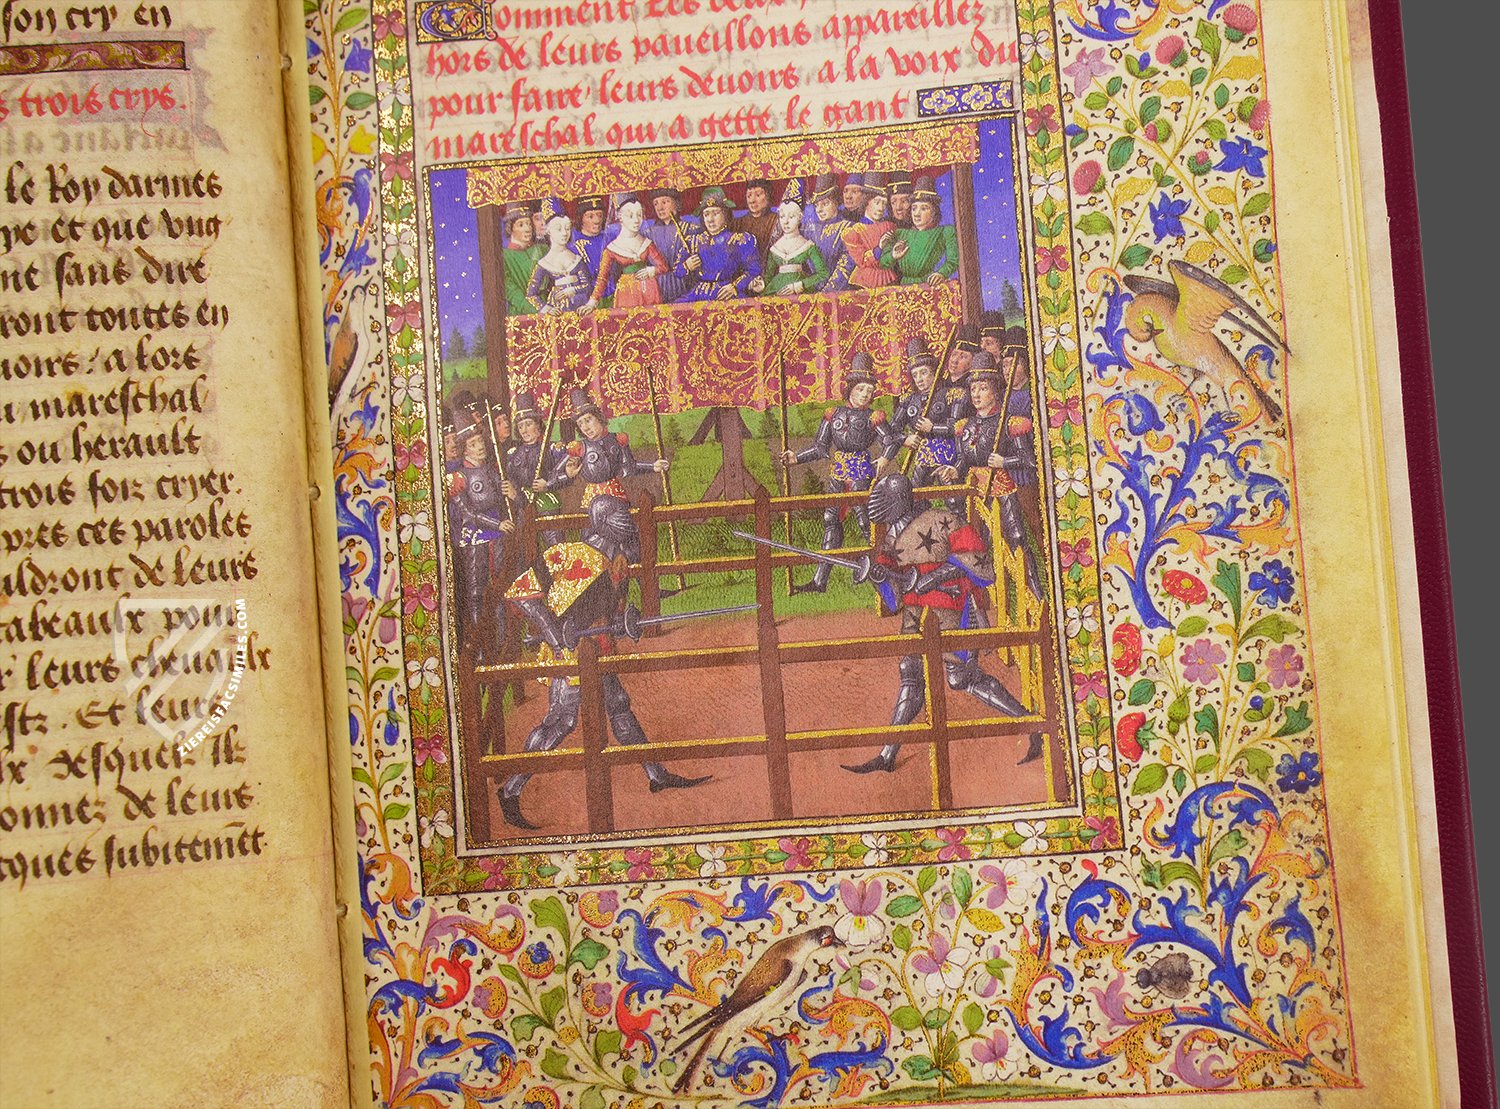 son cry en
s trois crys.
le Roy darmes
pe et que vng
ne sans dire
ront toutes en
uoirs. a lors
mareschal
s ou herault
trois foiz cryer.
pres ces paroles
uldront de leurs
tabeaulx pour
r leurs cheuaulx
stz. Et leurs
lx desquelz Ilz
onnez de leurs
cques subitemēt
Comment les deux
hors de leurs paueillons appareillez
pour faire leurs deuoirs a la voix du
mareschal qui a gette le gant
ZIEREISFACSIMILES.COM